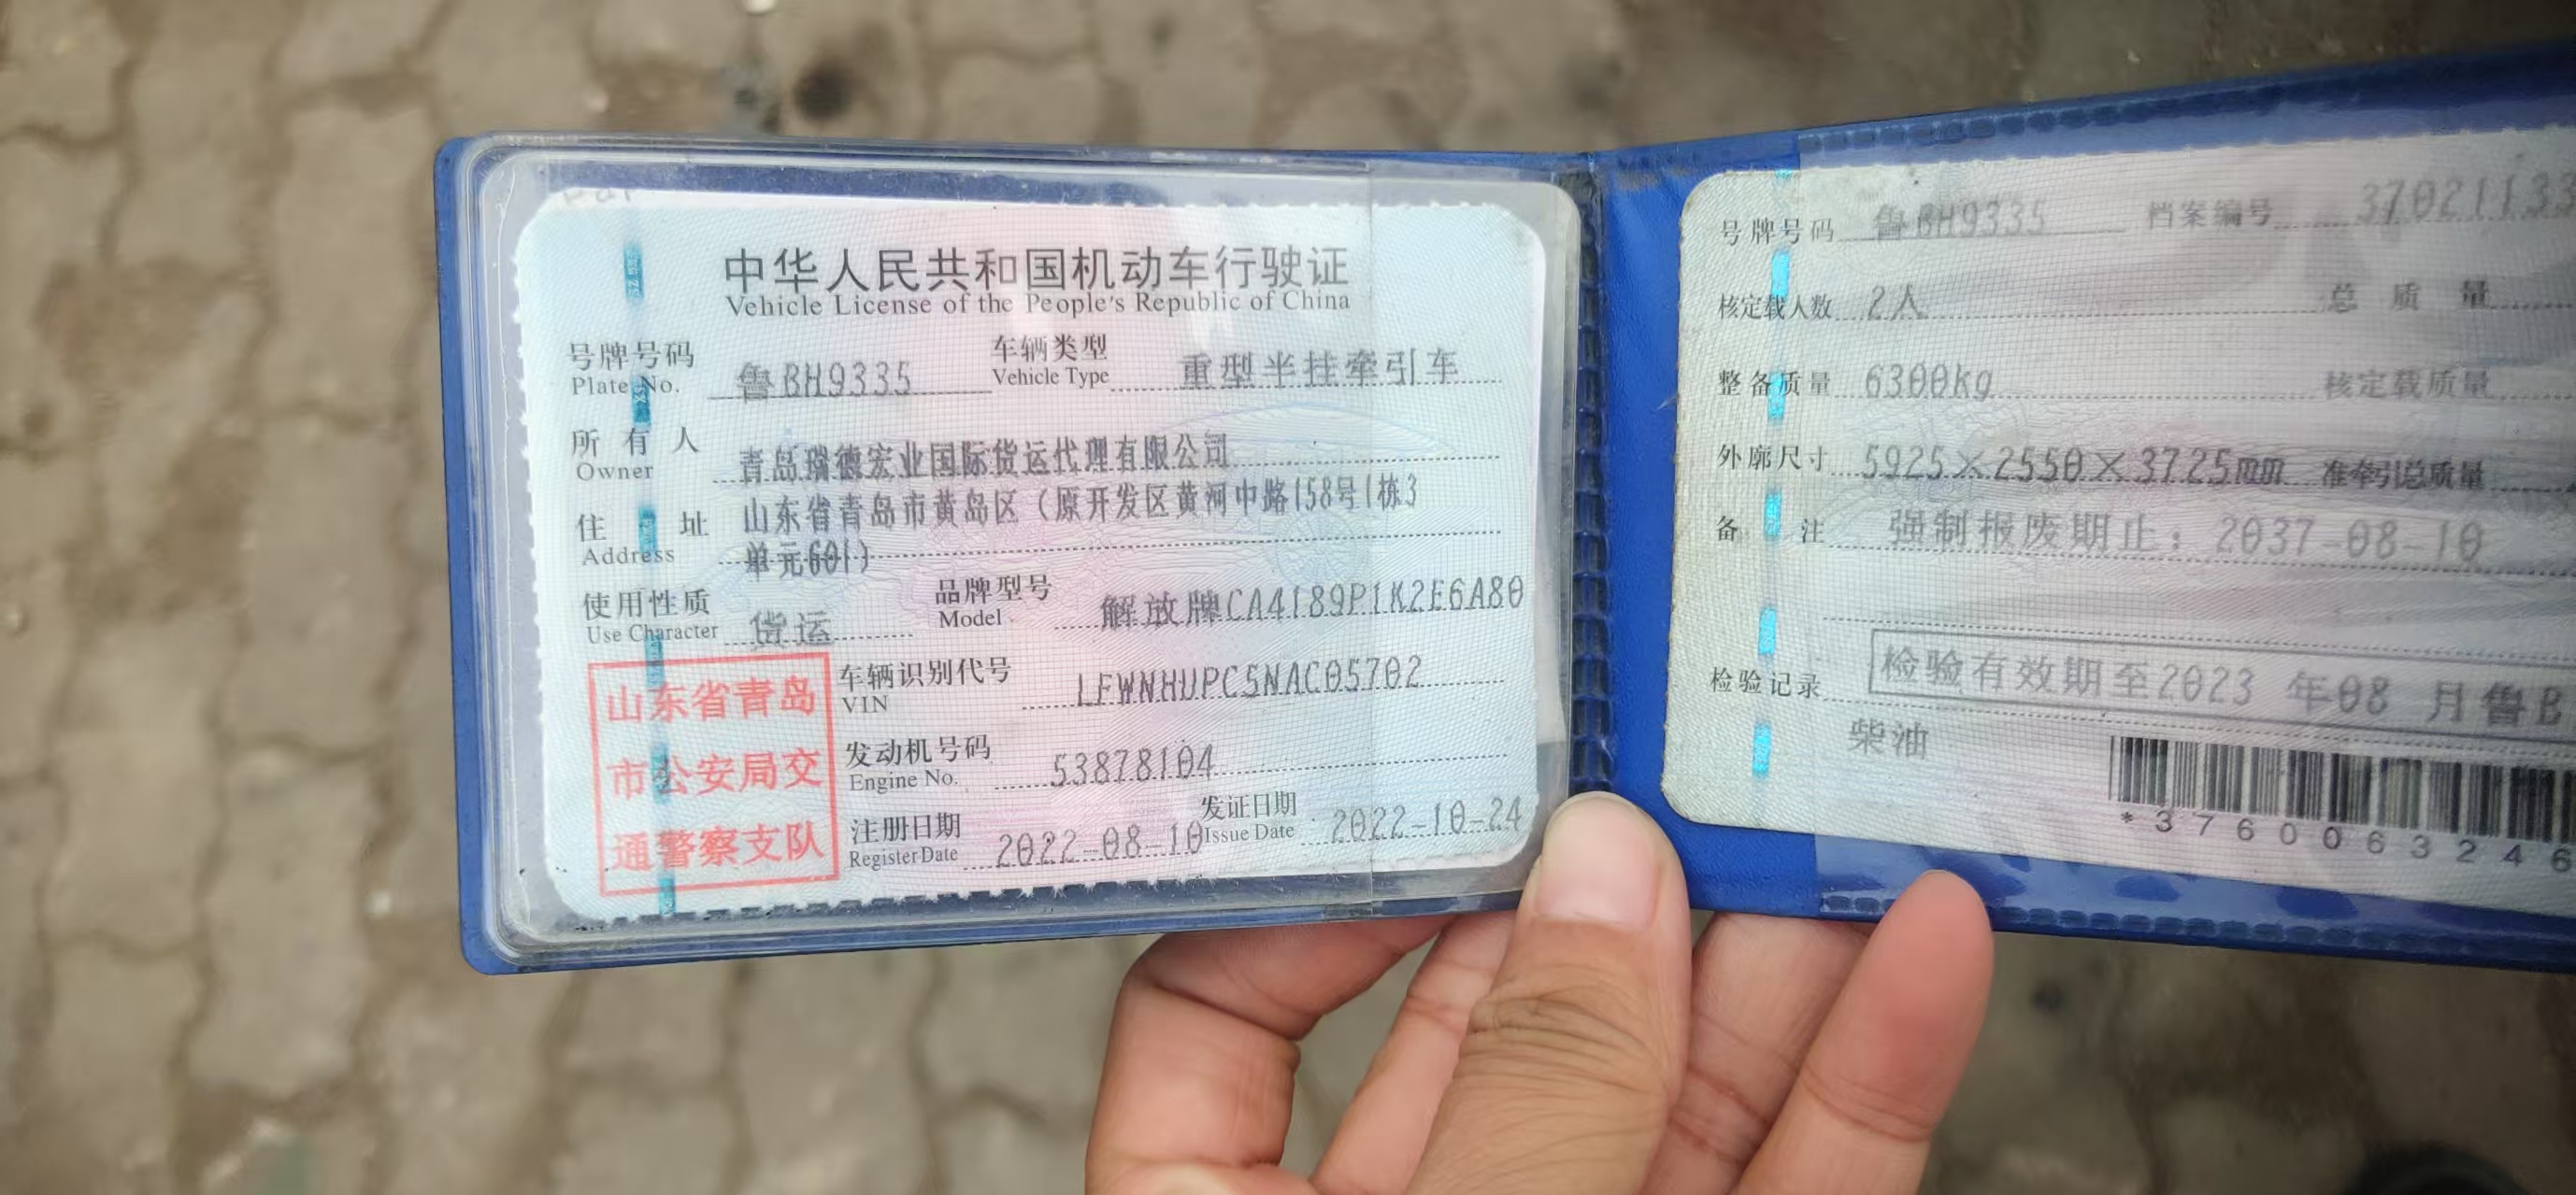 中华人民共和国机动车行驶证
Vehicle License of the People's Republic of China
号牌号码 鲁BH9335 车辆类型 重型半挂牵引车
Plate No. Vehicle Type
所有人 青岛瑞德宏业国际货运代理有限公司
Owner
住址 山东省青岛市黄岛区（原开发区黄河中路158号1栋3
Address 单元601）
使用性质 货运 品牌型号 解放牌CA4189P1K2E6A80
Use Character Model
山东省青岛
市公安局交
通警察支队
车辆识别代号 LFWNHUPC5NAC05702
VIN
发动机号码 53878104
Engine No.
注册日期 2022-08-10 发证日期 2022-10-24
Register Date Issue Date
号牌号码 鲁BH9335 档案编号 37021133
核定载人数 2人 总质量
整备质量 6300kg 核定载质量
外廓尺寸 5925×2550×3725mm 准牵引总质量
备注 强制报废期止：2037-08-10
检验记录 检验有效期至2023 年08 月鲁B
柴油
*3760063246